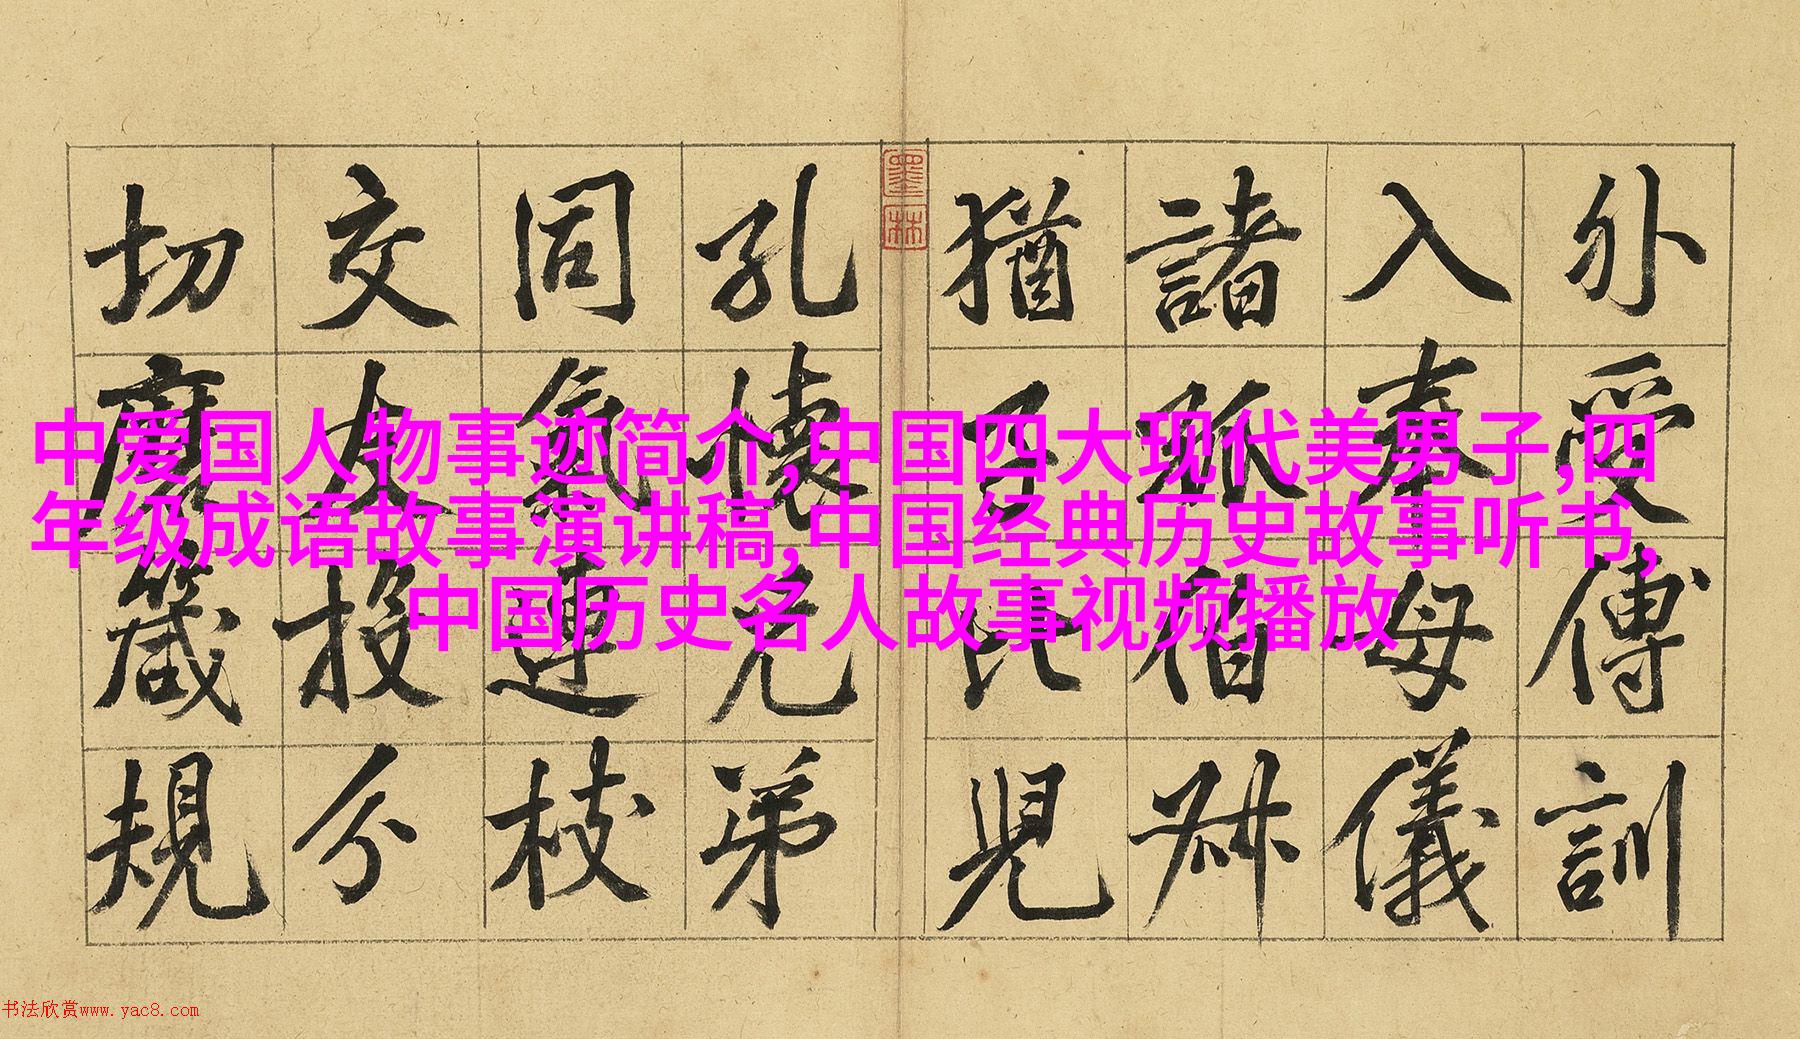 外受傅訓
入奉母儀
諸姑伯叔
猶子比兒
墨林
孔懷兄弟
同氣連枝
交友投分
切磨箴規
中爱国人物事迹简介,中国四大现代美男子,四
年级成语故事演讲稿,中国经典历史故事听书,
中国历史名人故事视频播放
书法欣赏www.yac8.com